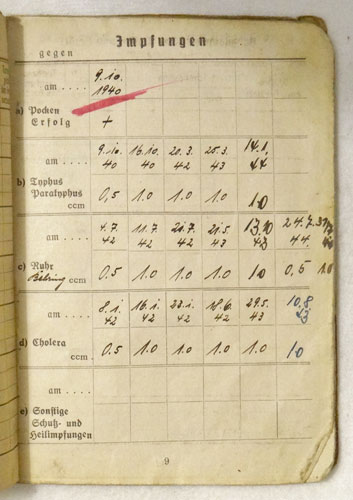 Impfungen
gegen
am . . . . 9. 10. 1940
a) Pocken
Erfolg +
am . . . . 9. 10. 40 16. 10. 40 20. 3. 42 25. 3. 43 14. 1. 44
b) Typhus
Paratyphus
ccm 0,5 1.0 1.0 1.0 1.0
am . . . . 4. 7. 42 11. 7. 42 21. 7. 42 21. 5. 43 13. 10 43 24. 7. 44
c) Ruhr
Behring ccm 0.5 1.0 1.0 1.0 1.0 0,5 1.0
am . . . . 8. 1. 42 16. 1. 42 23. 1. 42 18. 6. 42 29. 5. 43 10. 8 43
d) Cholera
ccm . 0.5 1.0 1.0 1.0 1.0 1.0
am . . . .
e) Sonstige
Schutz- und
Heilimpfungen
9